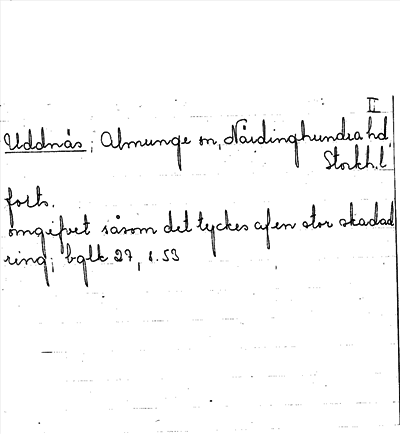 II
Uddnäs; Almunge sn, Närdinghundra hd
Stockh. l
forts.
omgifvet såsom det tyckes af en stor skadad
ring; bglk 27, s. 53